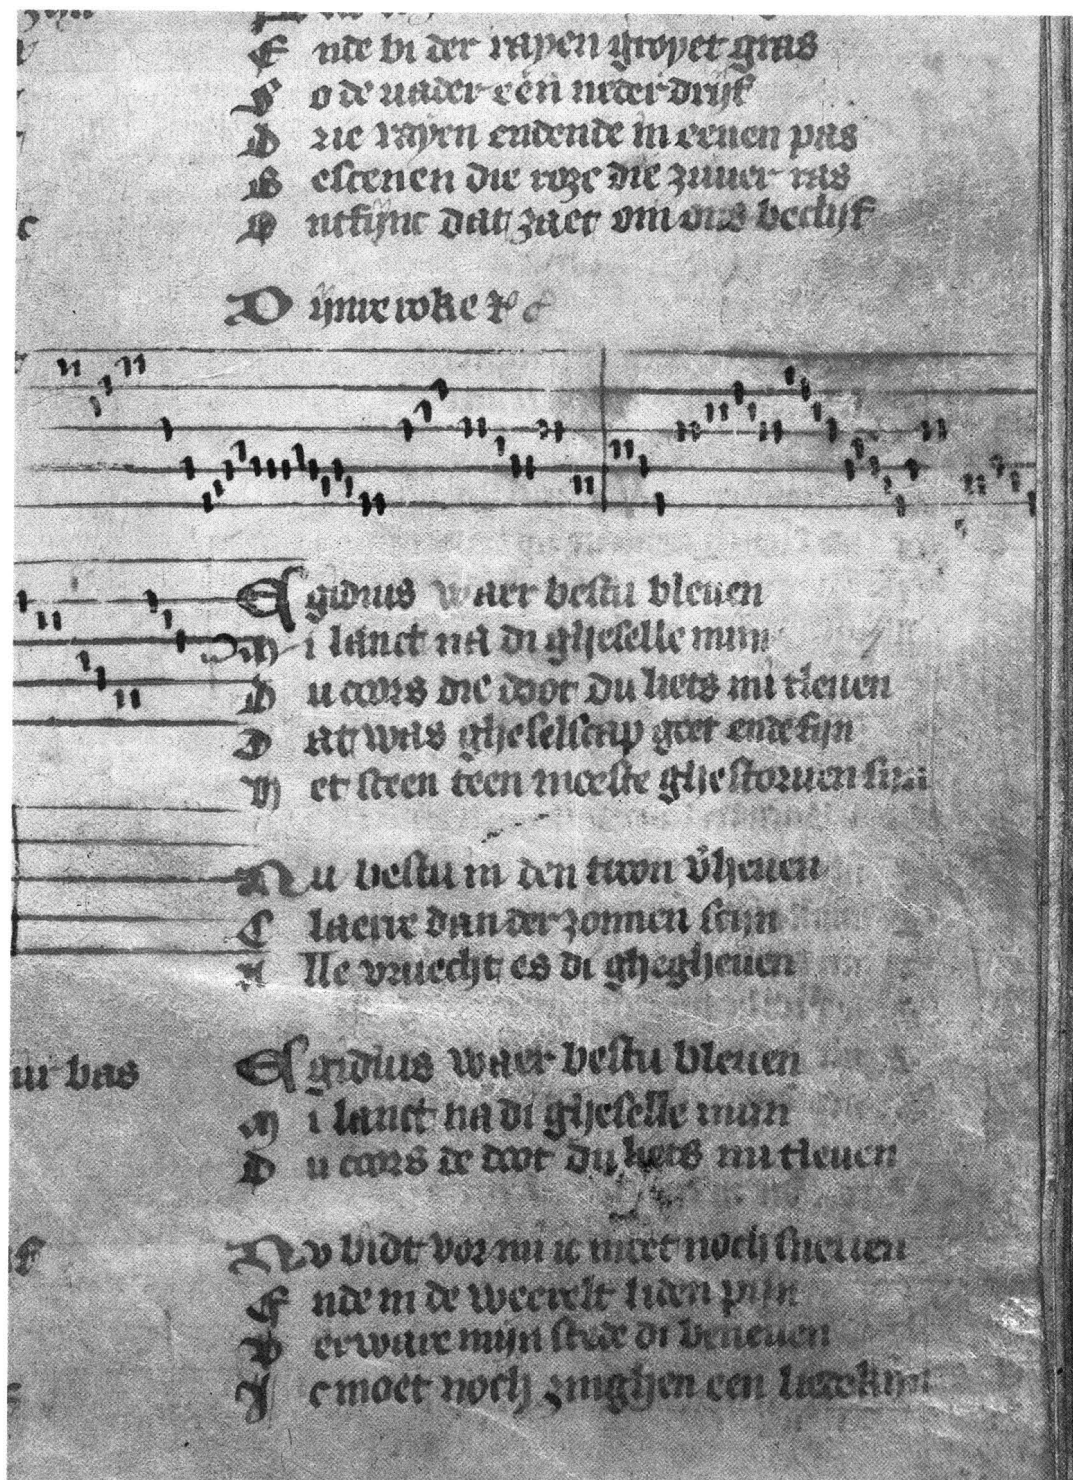 Ende bi der rayen groyet gras
So de uader een neder drijf
Drie rayen endende in eenen pas
Bescenen die roze die zuuer was
Ontfijnc dat zaet om ons beclijf
Dijnre woke
Egidius waer bestu bleuen
Mi lanct na di gheselle mijn
Du coors die doot du liets mi tleuen
Dat was gheselscap goet ende fijn
Het sceen teen moeste ghestoruen sijn
Nu bestu in den troon v̄heuen
Claerre dan der zonnen scijn
Alle vruecht es di ghegheuen
Egidius waer bestu bleuen
Mi lanct na di gheselle mijn
Du coors de doot du liets mi tleuen
Nv bidt vor mi ic moet noch sneuen
Ende in de weerelt liden pijn
Verware mijn stede di beneuen
Ic moet noch zinghen een liedekijn
bas